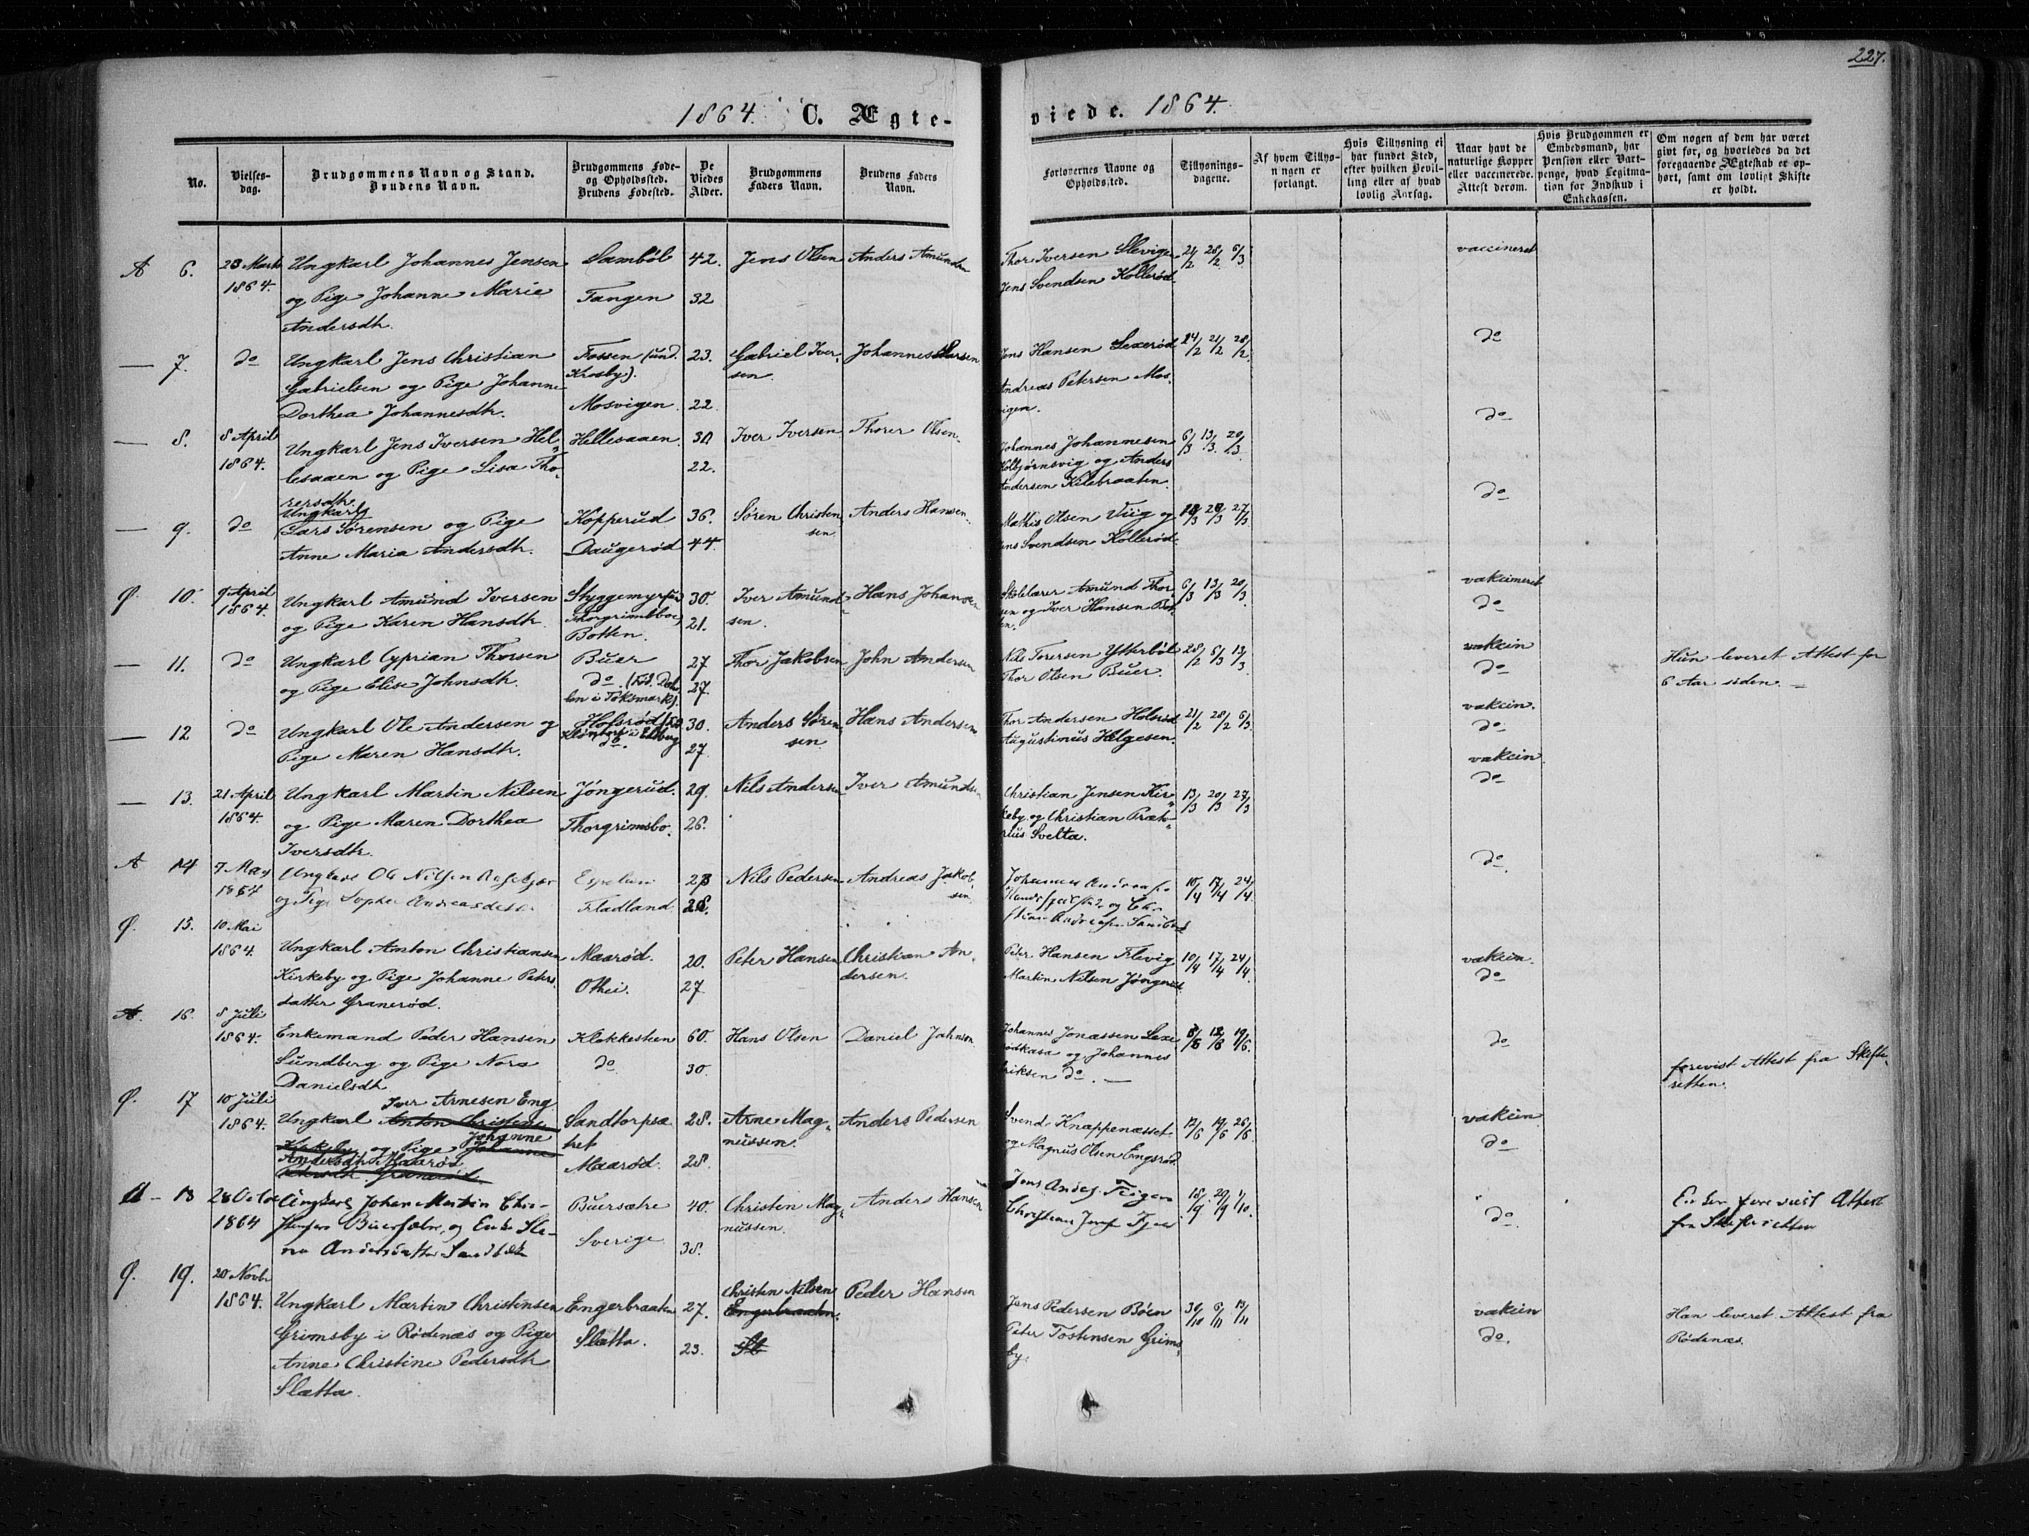 227.
1864. C. Ægte-
viede. 1864.
No.
Vielses-
dag.
Brudgommens Navn og Stand.
Brudens Navn.
Brudgommens Føde-
og Opholdssted.
Brudens Fødested.
De
Viedes
Alder.
Brudgommens
Faders Navn.
Brudens Faders
Navn.
Forlovernes Navne og
Opholdssted.
Tillysnings-
dagene.
Af hvem Tillys-
ningen er
forlangt.
Hvis Tillysning ei
har fundet Sted,
efter hvilken Bevil-
ling eller af hvad
lovlig Aarsag.
Naar havt de
naturlige Kopper
eller vaccinerede.
Attest derom.
Hvis Brudgommen er
Embedsmand, har
Pension eller Vart-
penge, hvad Legitma-
tion for Indskud i
Enkekassen.
Om nogen af dem har været
givt før, og hvorledes da det
foregaaende Ægteskab er op-
hørt, samt om lovligt Skifte
er holdt.
A 6. 28 Marts 1864.
Ungkarl Johannes Jensen
og Pige Johanne Marie
Andersdtr.
Sambøl 42.
Tangen 32
Jens Olsen
Anders Amundsen
Thor Iversen Slevigen
Jens Svendsen Kollerød
21/2 28/2 6/3
vaccineret
do
— 7. do
Ungkarl Jens Christian
Gabrielsen og Pige Johanne
Dorthea Johannesdtr.
Fossen (und.
Krosby). 23.
Mosvigen. 22
Gabriel Iver-
sen.
Johannes Larsen
Jens Hansen Lexerød
Andreas Petersen Mos-
vigen.
14/2 21/2 28/2
do
— 8. 8 April 1864.
Ungkarl Jens Iversen Hel-
lesaaen og Pige Lisa Tho-
rersdtr.
Hellesaaen. 30
22.
Iver Iversen
Thorer Olsen
Johannes Johannesen
Kolbjørnsvig og Anders
Andersen Kilebraaten.
6/3 13/3 20/3
do
— 9. do
Ungkarl
Lars Sørensen og Pige
Anne Maria Andersdtr.
Kopperud 36.
Daugerød 44.
Søren Christen-
sen.
Anders Hansen
Mathis Olsen Viig og
Jens Svendsen Kollerød
27/3
Ø. 10. 9 April 1864.
Ungkarl Amund Iversen
og Pige Karen Hansdtr.
Styggemyr
Thorgrimsboe) 30.
Botten. 21.
Iver Amund-
sen.
Hans Johansen
Skolelærer Amund Thor-
sen og Iver Hansen Bot-
ten.
6/3 13/3 20/3
vakcineret
do
— 11. do
Ungkarl Cyprian Thorsen
og Pige Elise Johnsdtr.
Buer 27
do (fød.
i Toksmark). 27.
Thor Jakobsen
John Andersen
Nils Toresen Ytterbøl
Thor Olsen Buer.
28/2 6/3 13/3
vakcin
do
Hun leveret Attest for
6 Aar siden. —
— 12 do
Ungkarl Ole Andersen og
Pige Maren Hansdtr.
Hofsrød 30.
Eidberg
do. 27.
Anders Søren-
sen
Hans Andersen
Thor Andersen Holsrød
Augustinus Helgesen.
21/2 28/2 6/3
vakcin.
do
— 13. 21 April 1864.
Ungkarl Martin Nilsen
og Pige Maren Dorthea
Iversdtr.
Jøngerud. 29.
Thorgrimsbo. 26.
Nils Andersen
Iver Amundsen
Christian Jensen Kir-
keby og Christian Præk-
rius Svelta.
13/3 20/3 27/3
vakcin
do
A 14 7 May 1864
Ungkarl Ole Nilsen
og Pige Sophie Andreasdatter
28
Fladland 26.
Nils Pedersen
Andreas Jakob-
sen
Johannes
10/4 17/4 24/4
do
Ø. 15. 10 Mai 1864.
Ungkarl Anton Christiansen
Kirkeby og Pige Johanne Peters-
datter Granerød.
Maarød. 20.
Othei. 27.
Peter Hansen
Christian An-
dersen.
Peter Hansen Flevig
Martin Nilsen Jøngerud.
10/4 17/4 24/4
vakcin.
do
A. 16. 8 Juli 1864.
Enkemand Peder Hansen
Sundberg og Pige Nora
Danielsdtr
Klokkesteen 60.
do 30.
Hans Olsen
Daniel Jahnsen
Johannes Jonassen Lexe-
rødkasa og Johannes
Eriksen do. —
19/6.
do
forevist Attest fra Skifte-
retten.
Ø. 17 10 Juli 1864.
Iver Arnesen Eng.
Ungkarl Anton Christens
Johanne
Kirkeby og Pige Johanne
Andersdtr. Maarød
Petersdtr. Granerød
Sandtorpsæ-
tret 28.
Maarød. 28.
Arne Mag-
nussen.
Anders Pedersen
Svend Knappenæsset
og Magnus Olsen Engsrød
12/6 19/6 26/6
vakcin
do
A — 18 28 Octob 1864
Ungkarl Johan Martin Chri-
stensen Buersætre, og Enke Ele-
na Andersdatter Sandbæk
Buersætre 40.
Sverige 38.
Christen Mag-
nussen.
Anders Hansen
do.
Enken forevist Attest
fra Skifteretten
Ø. 19. 20 Novb. 1864.
Ungkarl Martin Christensen
Grimsby i Rødenæs og Pige
Anne Christine Pedersdtr
Slætta.
Engerbraaten 27.
Slætta. 23.
Christen Nilsen
Engerbraaten.
Peder Hansen
Jens Pedersen Bøen
Peter Tostensen Grims-
by.
30/10 6/11 13/11
vakcin
do.
Han leveret Attest fra
Rødenæs.